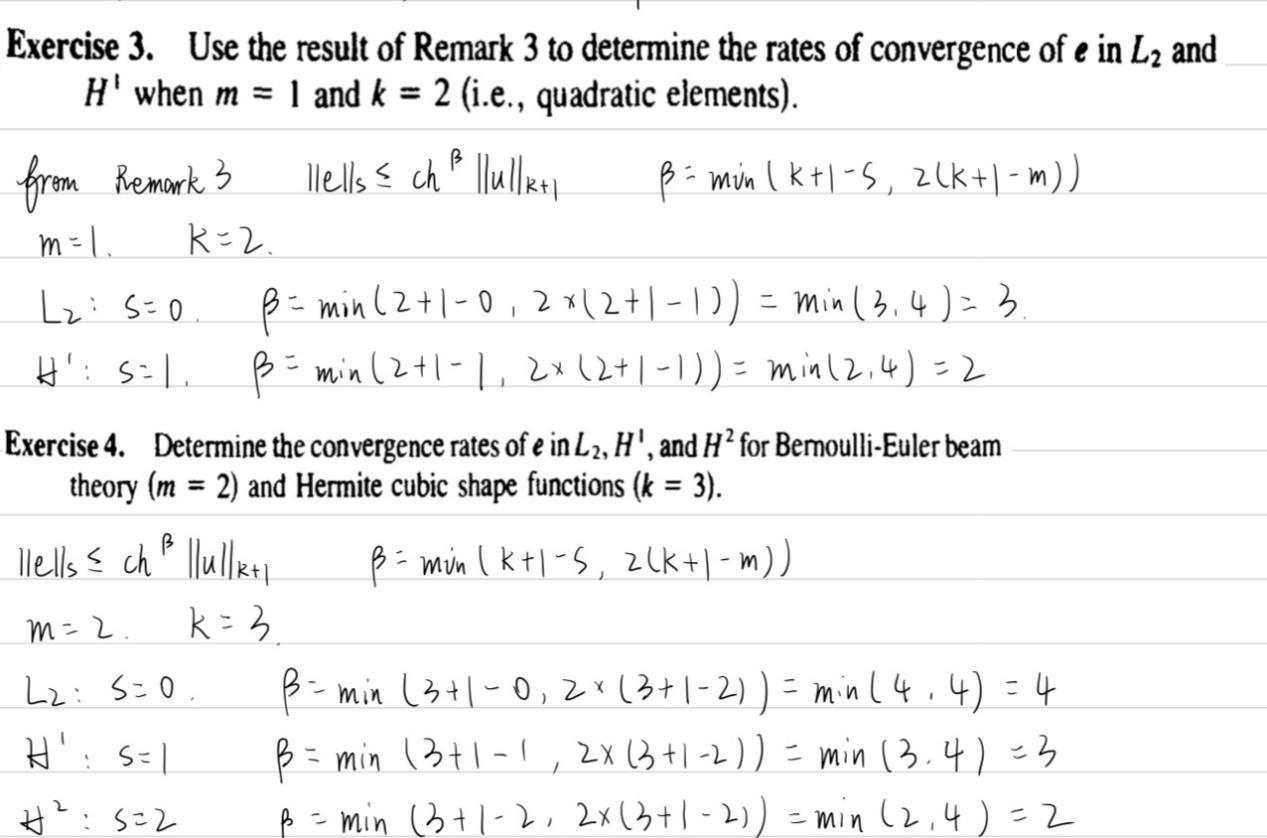 Exercise 3. Use the result of Remark 3 to determine the rates of convergence of e in L₂ and
H¹ when m = 1 and k = 2 (i.e., quadratic elements).
from Remark 3 ||e||s ≤ ch^β ||u||k+1 β = min(k+1-s, 2(k+1-m))
m=1. k=2.
L₂: s=0. β = min(2+1-0, 2×(2+1-1)) = min(3,4) = 3.
H¹: s=1. β = min(2+1-1, 2×(2+1-1)) = min(2,4) = 2
Exercise 4. Determine the convergence rates of e in L₂, H¹, and H² for Bernoulli-Euler beam
theory (m = 2) and Hermite cubic shape functions (k = 3).
||e||s ≤ ch^β ||u||k+1 β = min(k+1-s, 2(k+1-m))
m=2. k=3.
L₂: s=0. β = min(3+1-0, 2×(3+1-2)) = min(4,4) = 4
H¹: s=1 β = min(3+1-1, 2×(3+1-2)) = min(3.4) = 3
H²: s=2 β = min(3+1-2, 2×(3+1-2)) = min(2,4) = 2